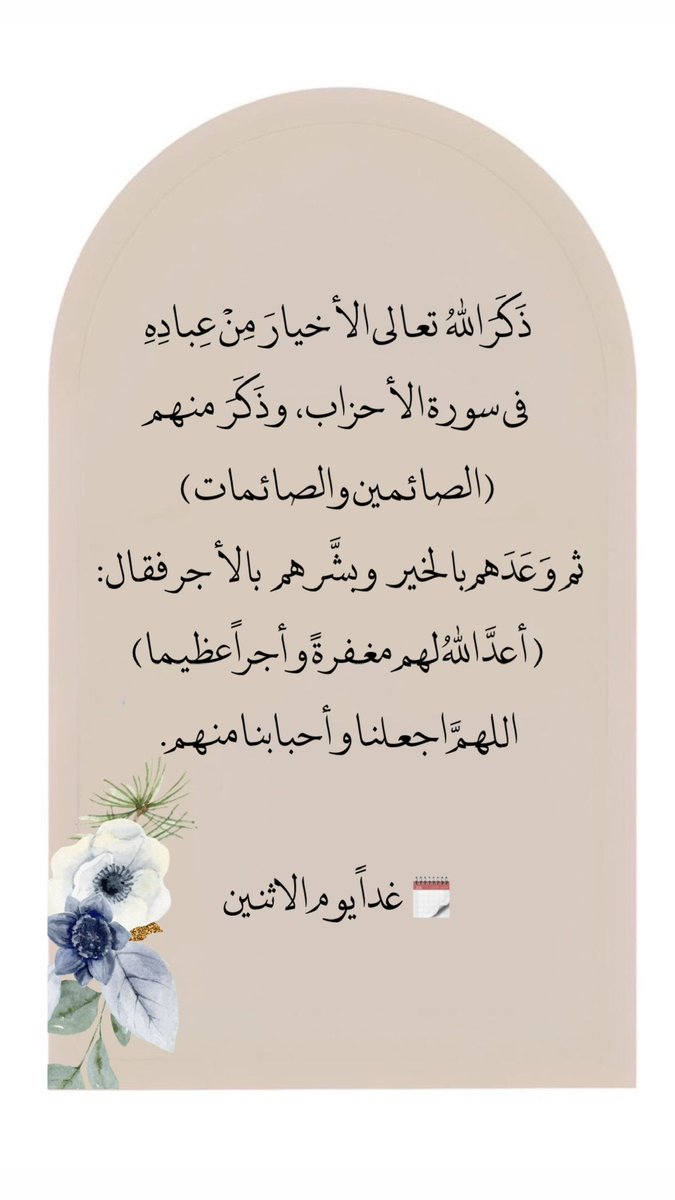 ذَكَرَ اللهُ تعالى الأخيارَ مِنْ عِبادِهِ
فى سورة الأحزاب، وذَكَرَ منهم
(الصائمين والصائمات)
ثم وَعَدَهم بالخير وبشَّرهم بالأجر فقال:
(أعدَّ اللهُ لهم مغفرةً وأجراً عظيما)
اللهمَّ اجعلنا وأحبابنا منهم.
🗓️ غداً يوم الاثنين